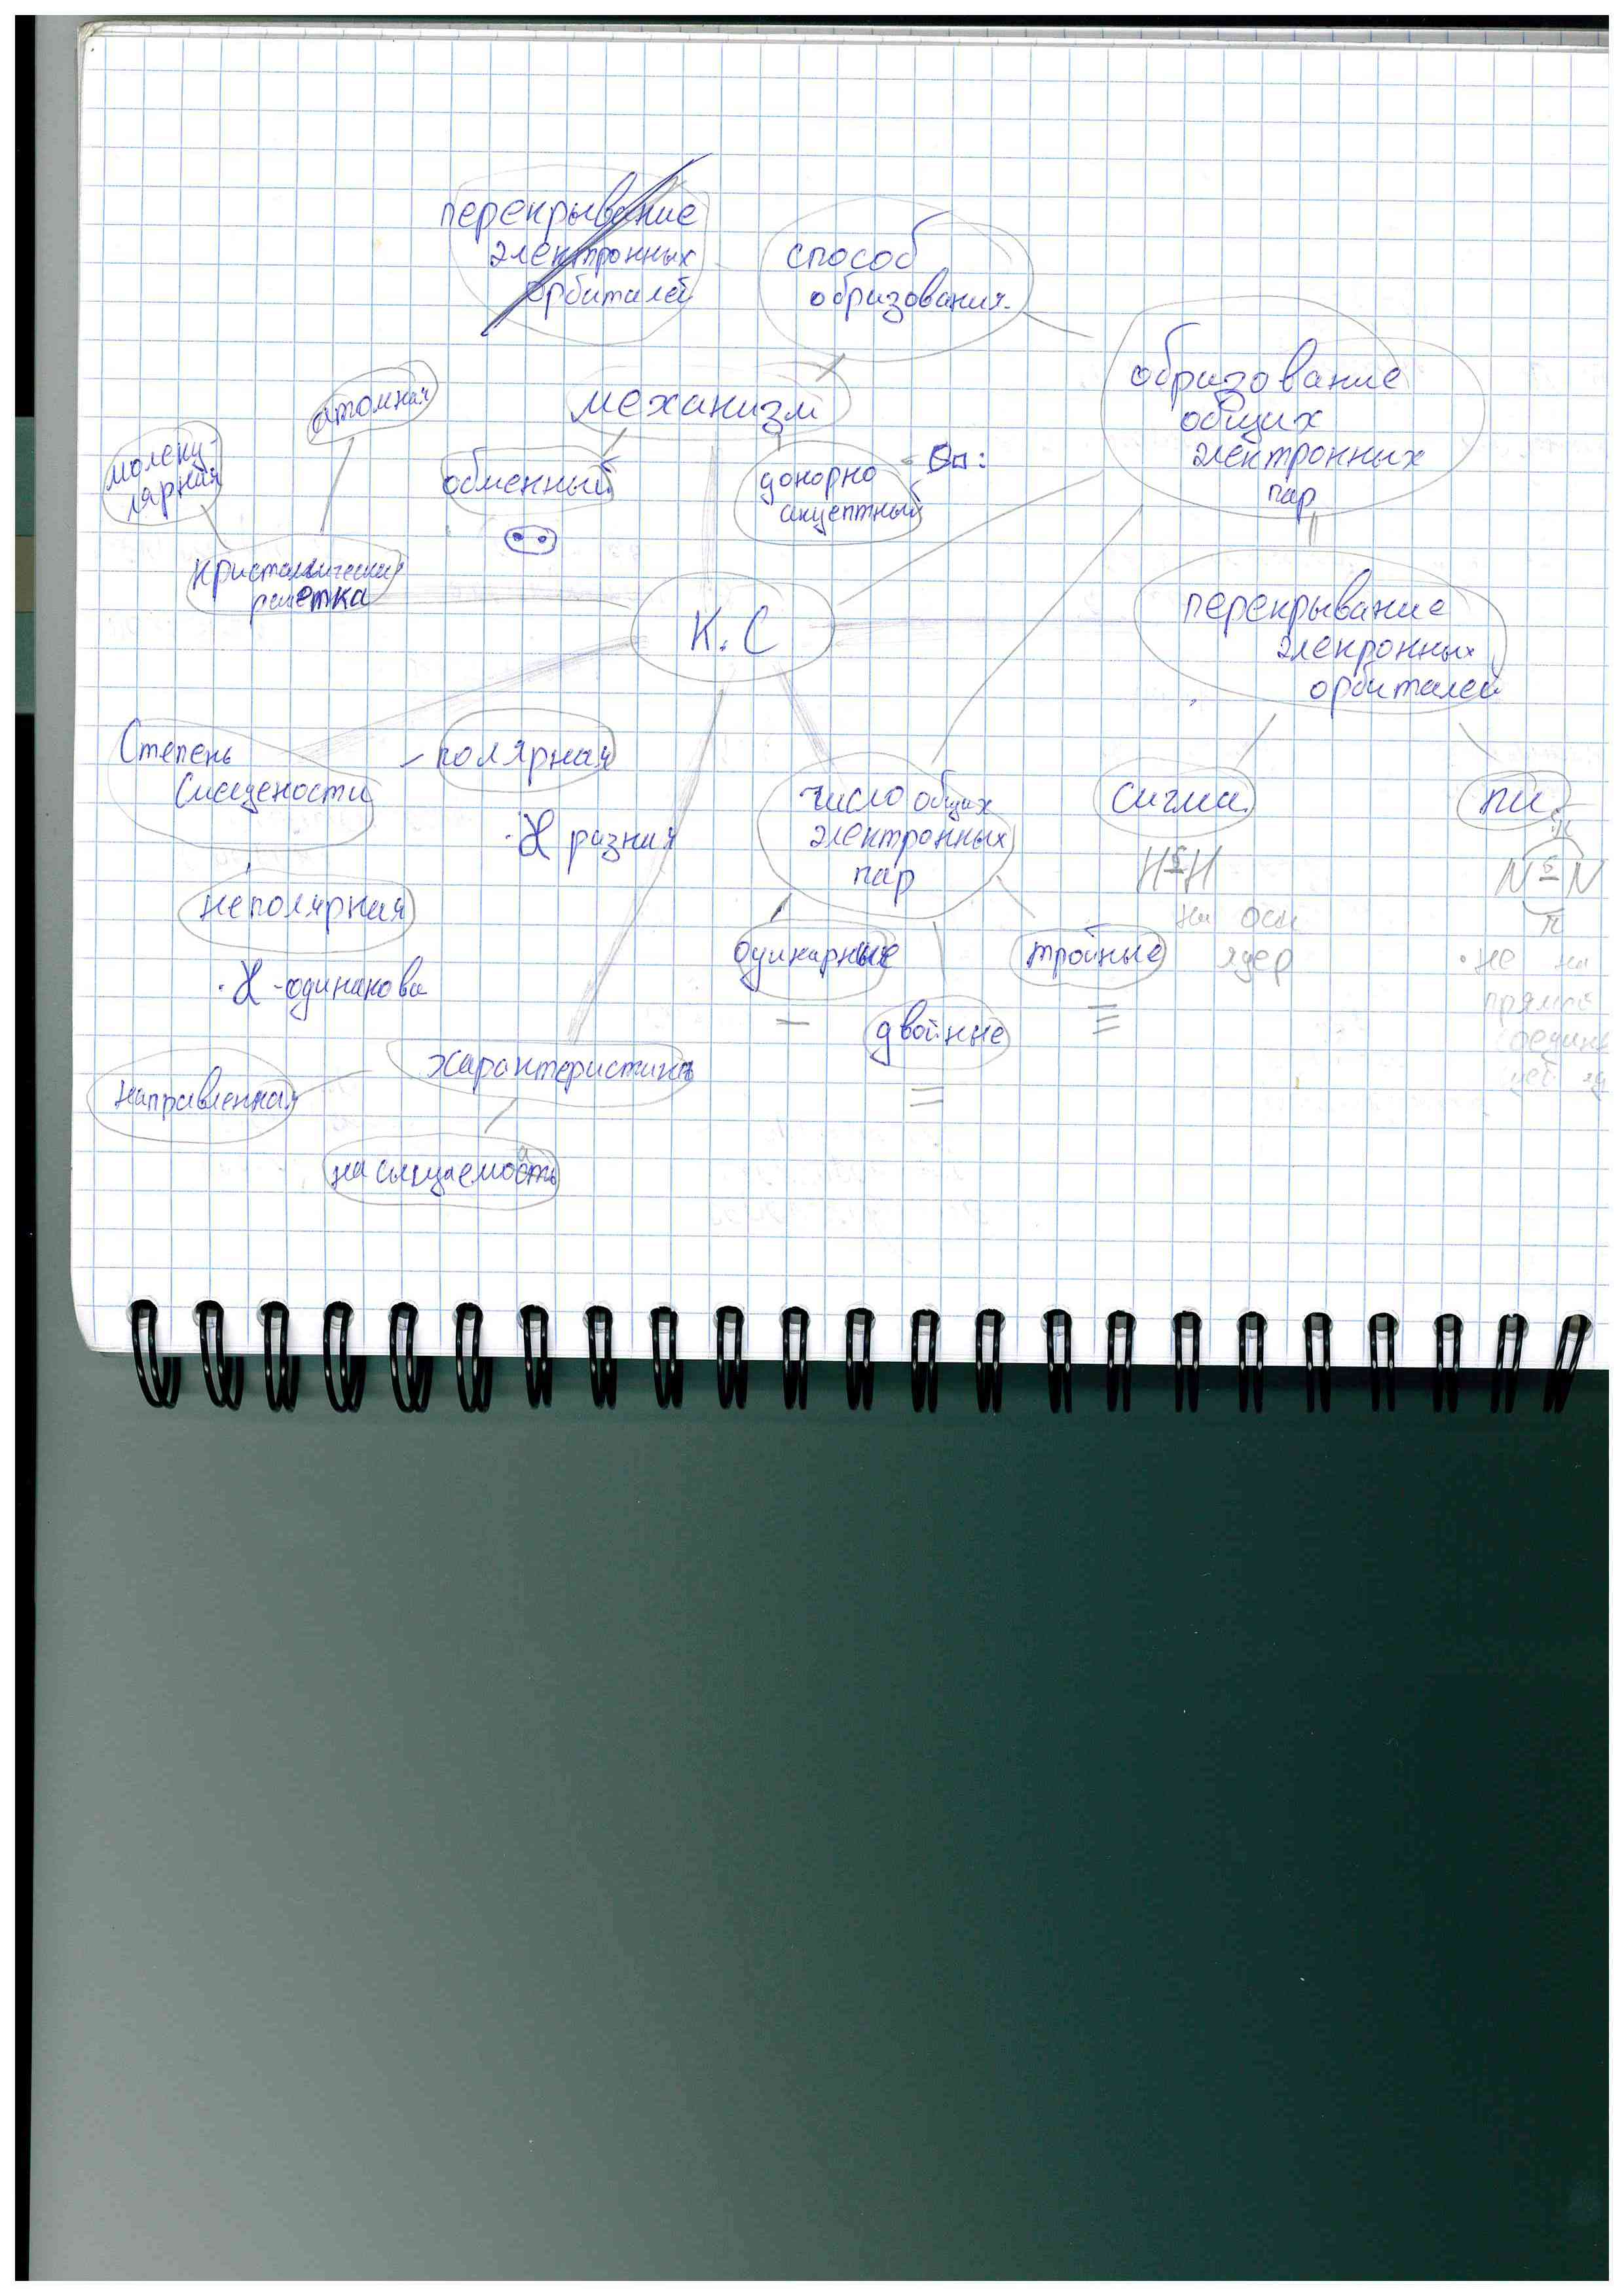 перекрывание
электронных
орбиталей
способ
образования
образование
общих
электронных
пар
механизм
атомная
молеку-
лярная
обменный
донорно
акцептный
кристаллическая
решетка
К.С
перекрывание
элекронных
орбиталей
Степень
полярная
χ разная
неполярная
χ - одинакова
число общих
электронных
пар
сигма
пи
H-H
на оси
ядер
N≡N
π
не на
прямой
одинарные
двойные
тройные
характеристика
направленная
насыщаемость